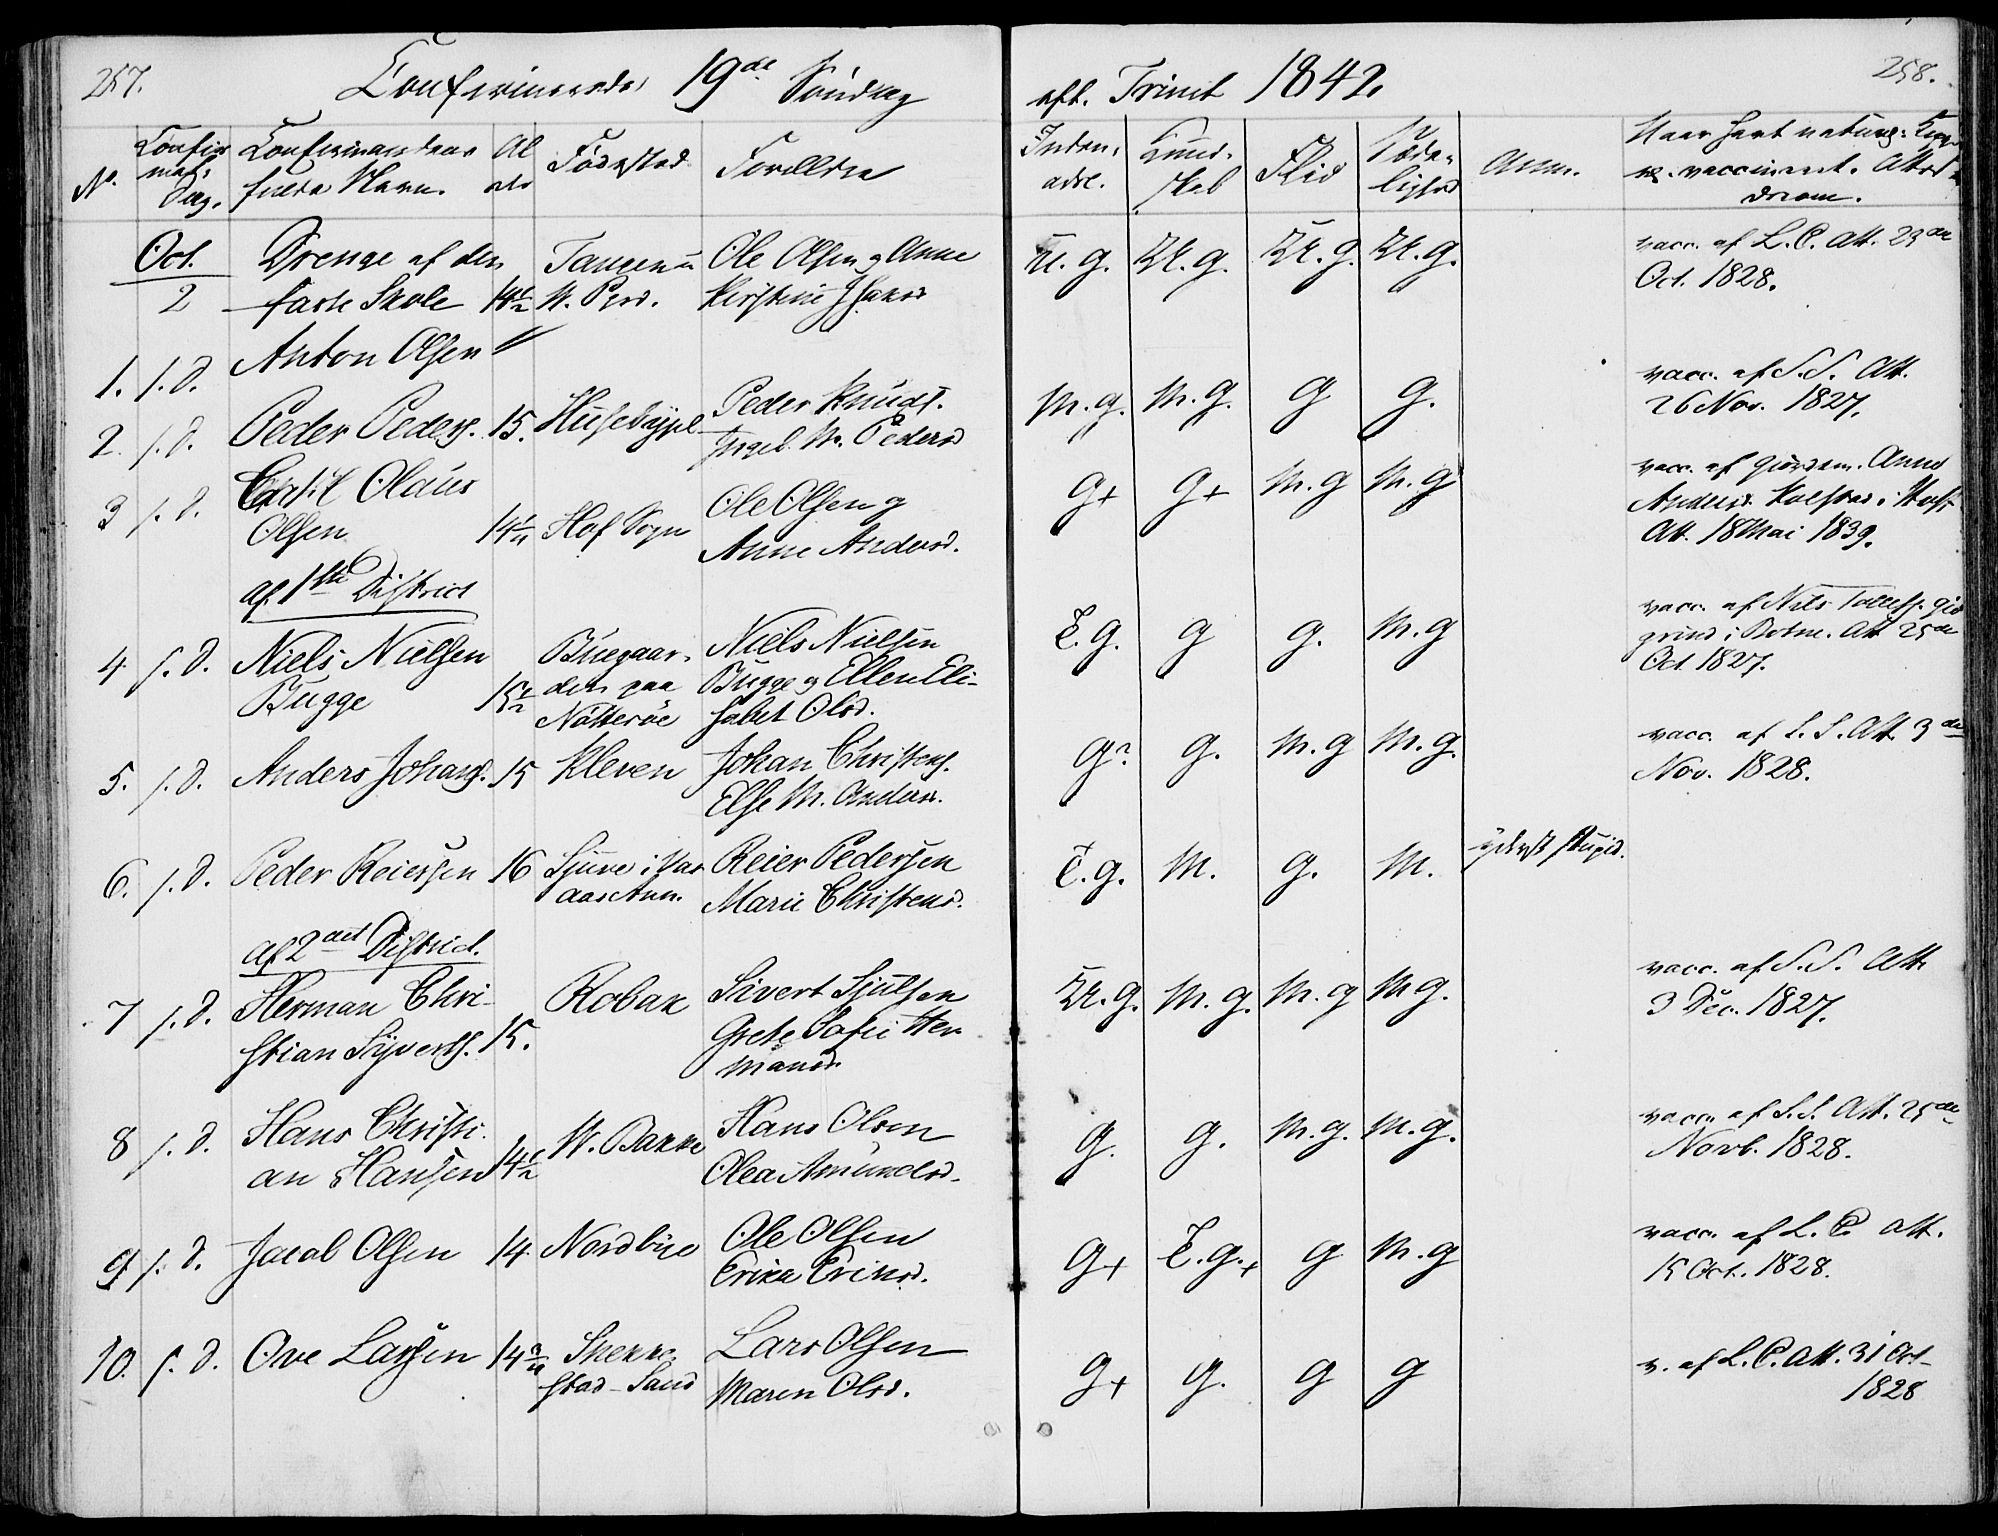 257.
Confirmerede 19de Søndag
aft. Trinit 1842.
258.
No.
Confir
mat.
Dag.
Confirmandens
fulde Navn.
Al
der
Fødested
Forældre
Inden-
adl.
Kund-
skab
Flid
Sæde-
lighed
Anm.
Naar havt naturl: Kop.
el. vaccineret. Attest
derom.
Oct.
2
Drenge af den
faste Skole
14½
Tangen i
N. Præd.
Ole Olsen og Anne
Kirstine
M. g.
M. g.
M. g.
M. g.
vacc. af L. C. Att. 23de
Oct. 1828.
1. s. d. Anton Olsen
2. s. d. Peder Peders. 15.
Peder Knuds.
Ingeb. M. Pedersd
M. g. M. g. g g.
vacc. af S. S. Att.
26 Nov. 1827.
3 s. d. Olaus
Olsen
Hof Sogn
Ole Olsen og
Anne Andersd.
g+ g+ M. g M. g
vacc. af Anne
Andersd. i Hof
Att. 18 Mai 1839.
af 1ste District
4 s. d. Niels Nielsen
Bugge
15½
Buegaar-
den paa
Nøtterøe
Niels Nielsen
Bugge og Ellen Eli-
sabet Olsd.
T. g. g g. M. g
vacc. af Nils
grind i Botne. Att 25de
Oct 1827.
5. s. d. Anders Johans. 15 Kleven
Johan Christens.
Else M. Anders.
g? g. M. g M. g.
vacc. af S. S. Att 3de
Nov. 1828.
6. s. d. Peder Reiersen 16
Reier Pedersen
Marie Christensd.
T. g. M. g. M.
yderst stupid.
af 2det District.
7 s. d. Herman Chri-
stian Syverts. 15.
Robak
Sivert Sjulsen
Grete Sofie Her
mansd.
M. g. M. g. M. g M g.
vacc. af S. S. Att
3 Dec. 1827.
8 s. d. Hans Christi-
an Hansen 14½
N. Bakke
Hans Olsen
Olea Amundsd.
g. g. M. g. M. g.
vacc. af S. S. Att. 25de
Novb. 1828.
9 s. d. Jacob Olsen 14 Nordbye
Ole Olsen
g+ T. g.+ g M. g
vacc. af L. C. Att.
15 Oct. 1828.
10. s. d. Ove Larsen
Lars Olsen
Maren Olsd.
g+ g. g g
v. af L. C. Att. 31 Oct
1828